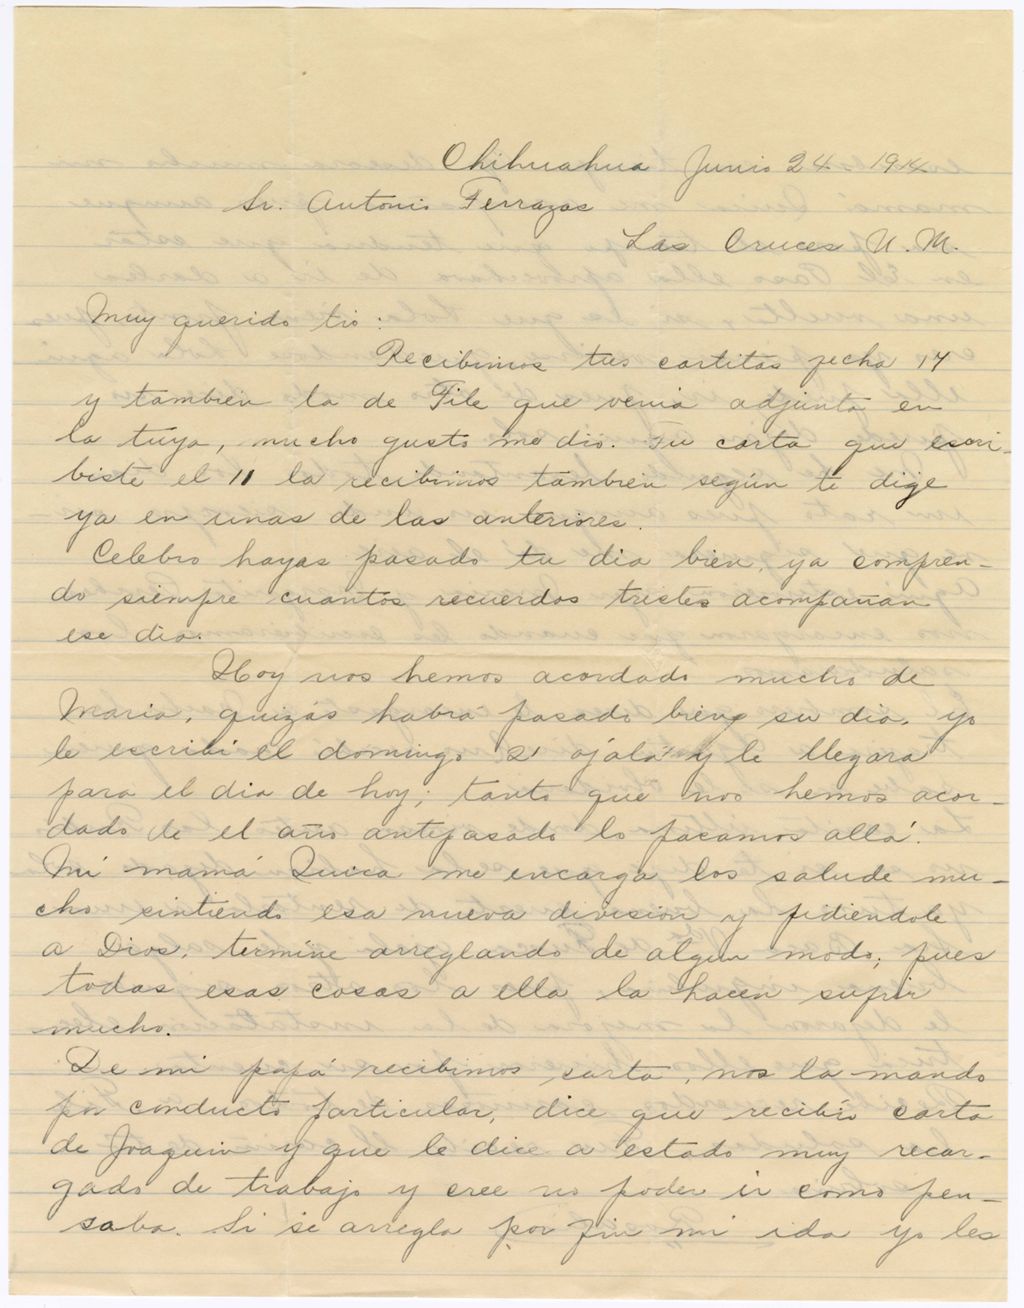 Chihuahua Junio 24 1914
Sr. Antonio Terrazas
Las Cruces N. M.
Muy querido tio:
Recibimos tus cartitas fecha 17
y tambien la de File que venia adjunta en
la tuya, mucho gusto me dio. Tu carta que escri-
biste el 11 la recibimos tambien según te dige
ya en unas de las anteriores.
Celebro hayas pasado tu dia bien, ya compren-
do siempre cuantos recuerdos tristes acompañan
ese dia.
Hoy nos hemos acordado mucho de
Maria, quizás habrá pasado bien su dia, yo
le escribí el domingo 21 ojalá y le llegara
para el dia de hoy; tanto que nos hemos acor-
dado de el año antepasado lo pacamos allá.
Mi mamá Quica me encarga los salude mu-
cho sintiendo esa nueva division y pidiendole
a Dios, termine arreglando de algun modo; pues
todas esas cosas a ella la hacen sufrir
mucho.
De mi papá recibimos carta, nos la mando
por conducto particular, dice que recibio carta
de Joaquin y que le dice a estado muy recar-
gado de trabajo y cree no poder ir como pen-
saba. Si se arregla por fin mi ida yo les